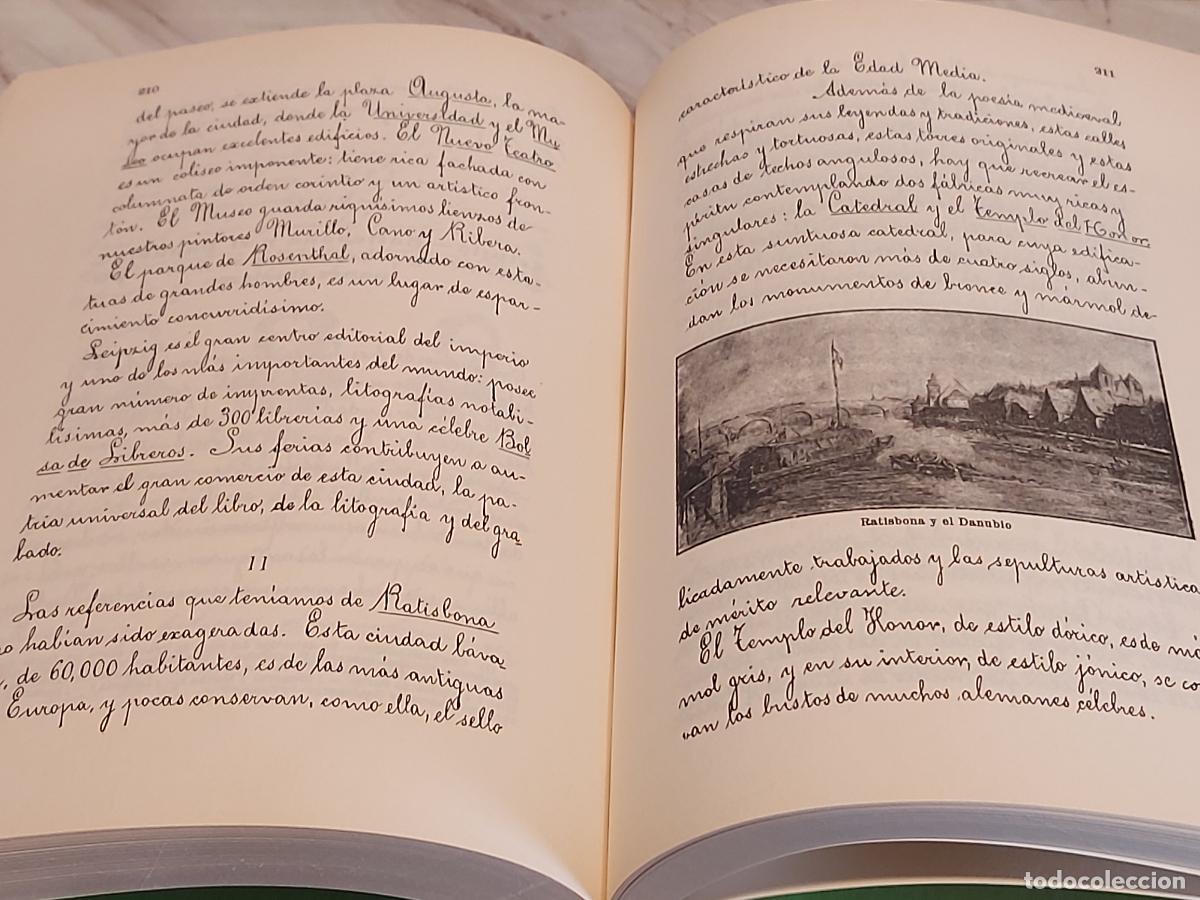 210
del paseo, se extiende la plaza Augusta, la ma-
yor de la ciudad, donde la Universidad y el Mu-
seo ocupan excelentes edificios. El Nuevo Teatro
es un coliseo imponente: tiene rica fachada con
columnata de orden corintio y un artístico fron-
tón. El Museo guarda riquísimos lienzos de
nuestros pintores Murillo, Cano y Ribera.
El parque de Rosenthal, adornado con esta-
tuas de grandes hombres, es un lugar de espar-
cimiento concurridísimo.
Leipzig es el gran centro editorial del imperio
y uno de los más importantes del mundo: posee
gran número de imprentas, litografías notabi-
lísimas, más de 300 librerías y una célebre Bol
sa de Libreros. Sus ferias contribuyen a au-
mentar el gran comercio de esta ciudad, la pa-
tria universal del libro, de la litografía y del gra
bado.
II
Las referencias que teníamos de Ratisbona
o habían sido exageradas. Esta ciudad báva
, de 60,000 habitantes, es de las más antiguas
Europa, y pocas conservan, como ella, el sello
211
característico de la Edad Media.
Además de la poesía medioeval
que respiran sus leyendas y tradiciones, estas calles
estrechas y tortuosas, estas torres originales y estas
casas de techos angulosos, hay que recrear el es-
píritu contemplando dos fábricas muy ricas y
singulares: la Catedral y el Templo del Honor.
En esta suntuosa catedral, para cuya edifica-
ción se necesitaron más de cuatro siglos, abun-
dan los monumentos de bronce y mármol de-
Ratisbona y el Danubio
licadamente trabajados y las sepulturas artística
de mérito relevante.
El Templo del Honor, de estilo dórico, es de má
mol gris, y en su interior, de estilo jónico, se co
van los bustos de muchos alemanes célebres.
todocoleccion